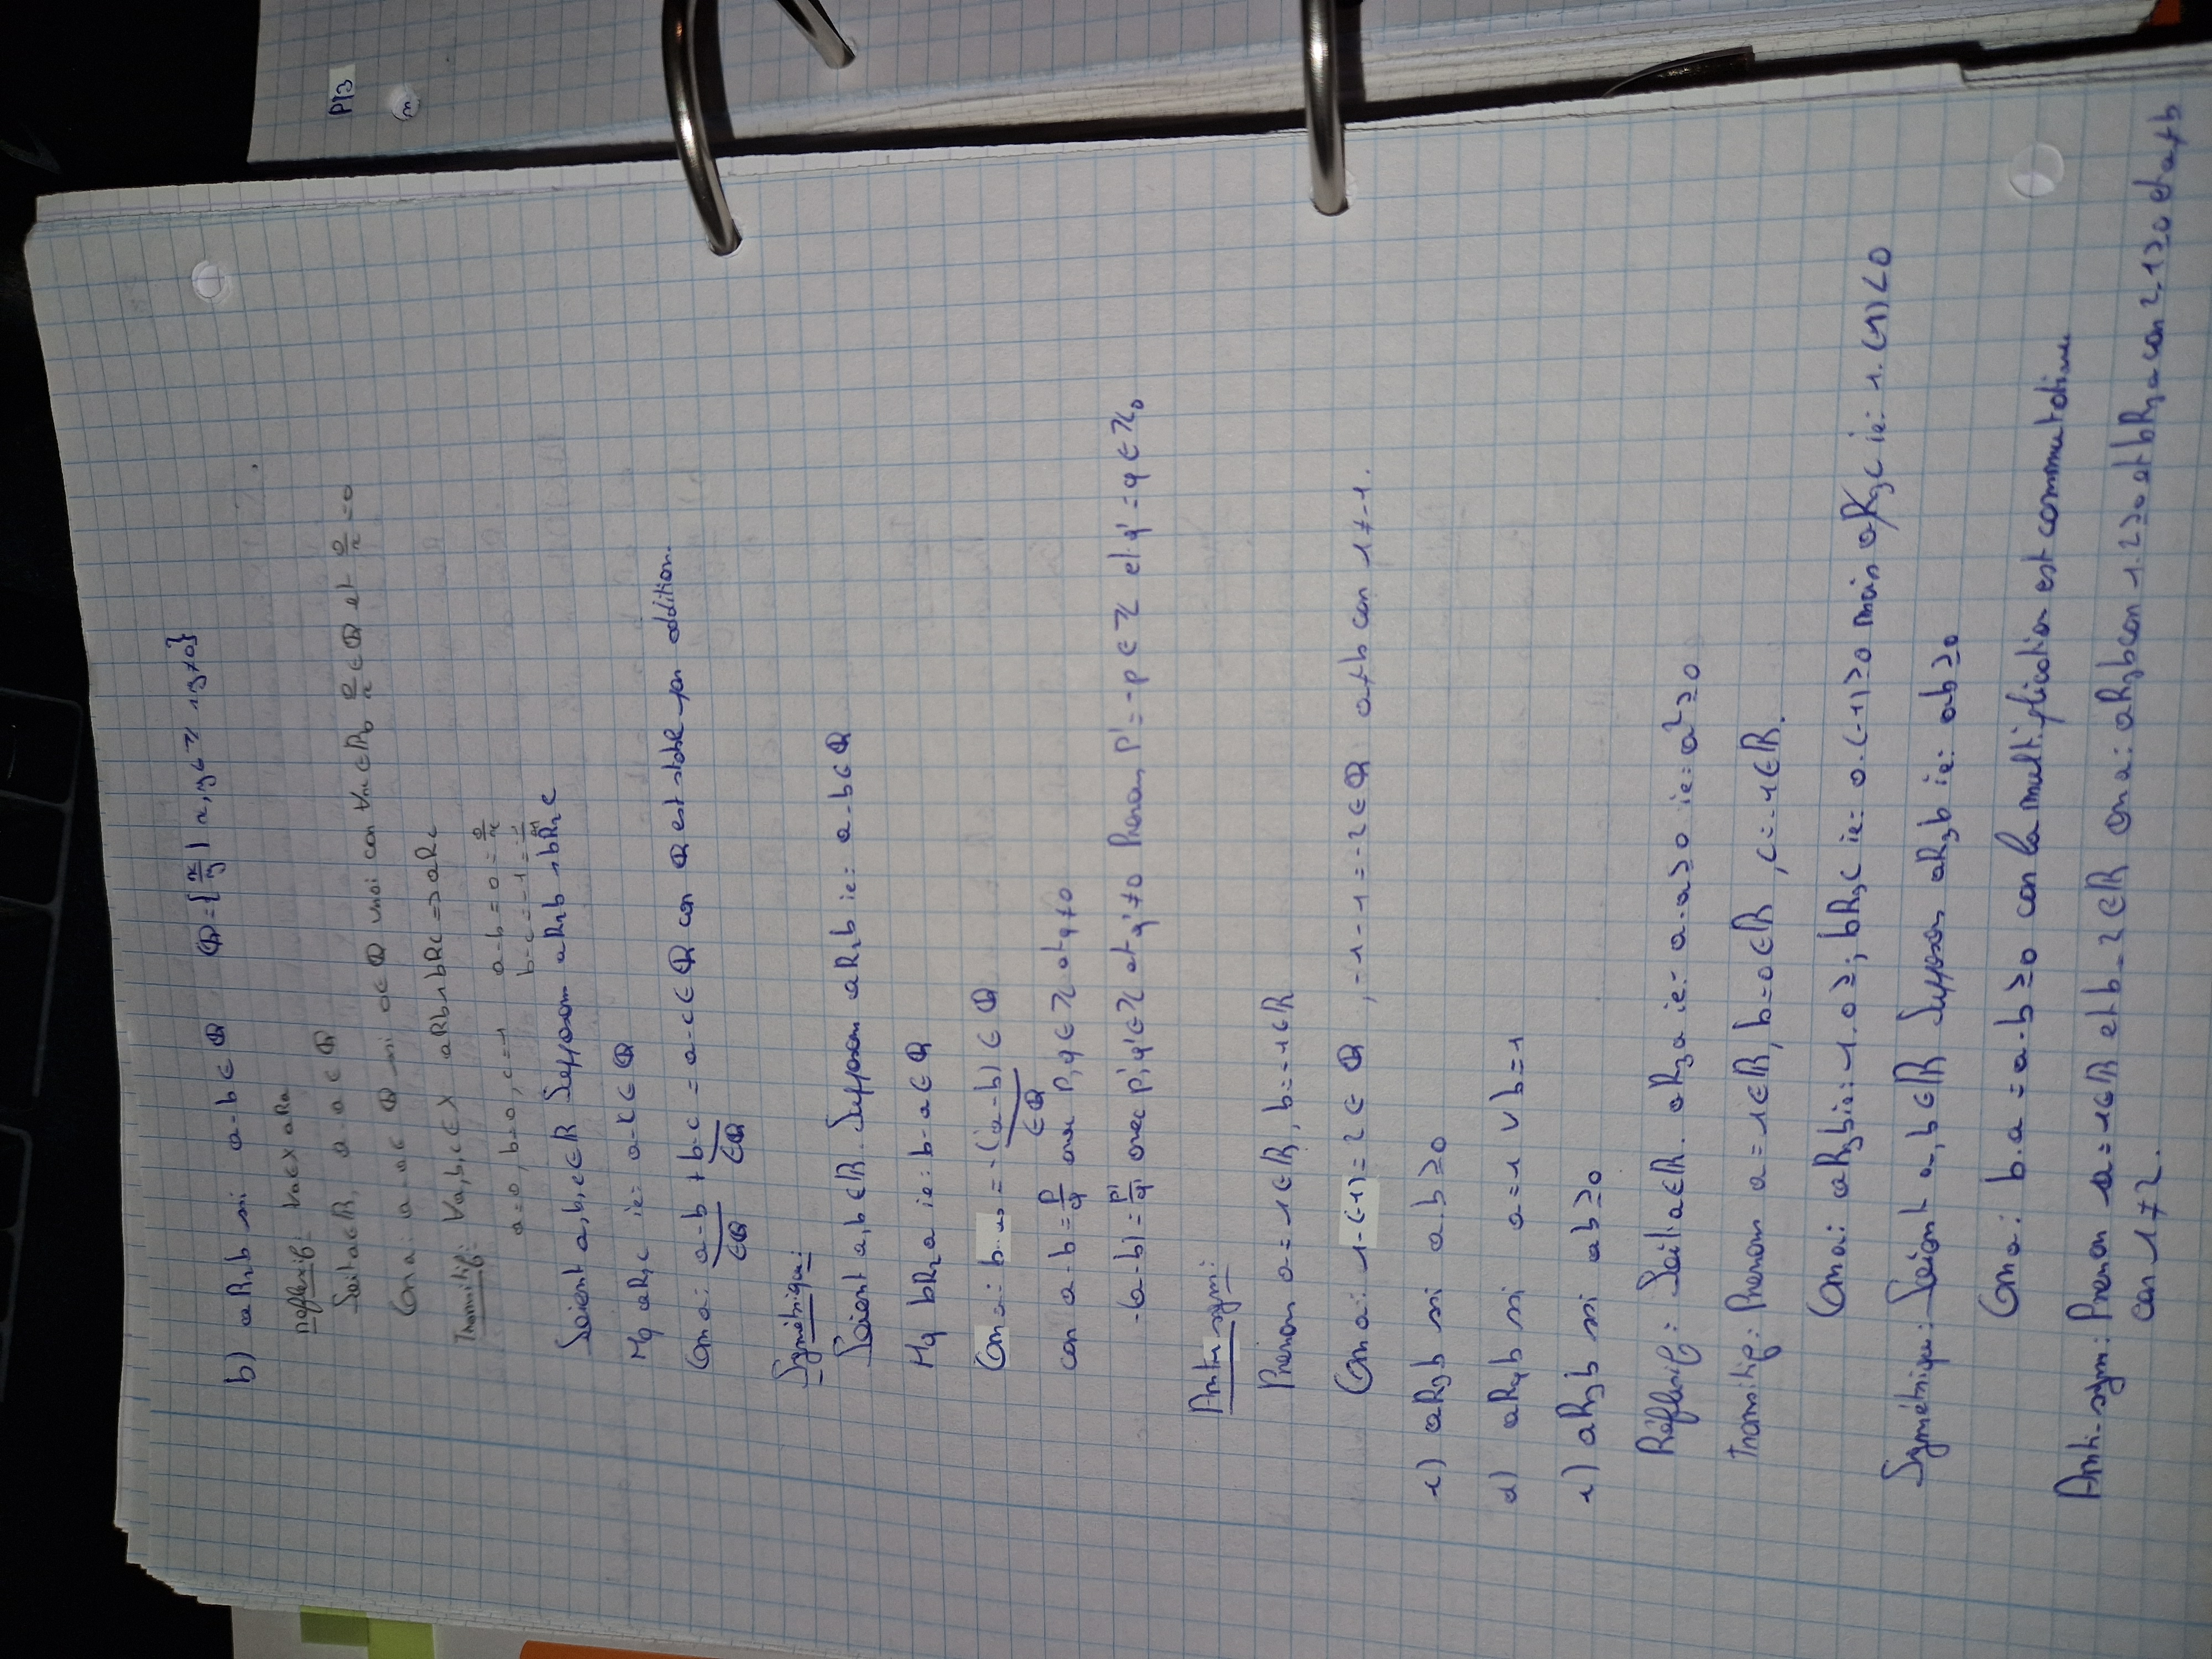 b) aR₂b ssi a-b ∈ ℚ ℚ = {x/y | x, y ∈ ℤ ∧ y ≠ 0}
Réflexif: ∀a∈X aRa
Soit a∈ℝ, a-a ∈ ℚ
On a: a-a ∈ ℚ ssi 0∈ℚ vrai car ∀x∈ℝ₀ 0/x ∈ ℚ et 0/x = 0
Transitif: ∀a,b,c ∈ X aRb ∧ bRc => aRc
a=0, b=0, c=1 a-b = 0 = 0/x
b-c = -1 =
Soient a,b,c∈ℝ Supposons aR₂b ∧ bR₂c
Mq aR₂c ie: a-c ∈ ℚ
On a: a-b + b-c = a-c ∈ ℚ car ℚ est stable par addition.
∈ℚ ∈ℚ
Symétrique:
Soient a,b ∈ℝ. Supposons aR₂b ie: a-b∈ℚ
Mq bR₂a ie: b-a ∈ ℚ
On a: b-a = -(a-b) ∈ ℚ
∈ℚ
car a-b = p/q avec p,q ∈ ℤ et q≠0
-(a-b) = p'/q' avec p',q'∈ℤ et q'≠0 Prenons p'=-p ∈ ℤ et q'=q ∈ ℤ₀
Anti sym:
Prenons a=1∈ℝ, b=-1∈ℝ
On a: 1-(-1)=2 ∈ ℚ, -1-1=-2∈ℚ a≠b car 1≠-1.
c) aR₃b ssi a.b ≥0
d) aR₄b ssi a=1 ∨ b=1
c) aR₃b ssi ab≥0
Réflexif: Soit a∈ℝ. aR₃a ie: a.a≥0 ie: a²≥0
Transitif: Prenons a=1∈ℝ, b=0∈ℝ, c=-1∈ℝ.
On a: aR₃b ie: 1.0≥; bR₃c ie: 0.(-1)≥0 mais aR̸₃c ie: 1.(-1)<0
Symétrique: Soient a,b∈ℝ Supposons aR₃b ie: ab≥0
On a: b.a = a.b≥0 car la multiplication est commutative
Anti-sym: Prenon a=1∈ℝ et b=2∈ℝ on a: aR₃b car 1.2≥0 et bR₃a car 2.1≥0 et a≠b
car 1≠2.
P13